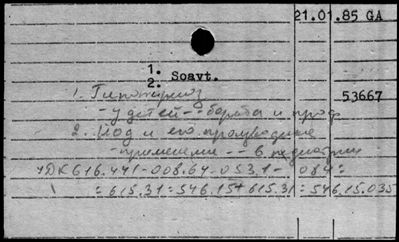 21.01.85 GA
1.
2. Soavt.
1. Гипотиреоз
53667
- у детей -- борьба и проф
2. Иод и его производные
- применение -- в педиатрии
УДК 616.441-008.64-053.1-084:
:615.31:546.15+615.31:546.15.035